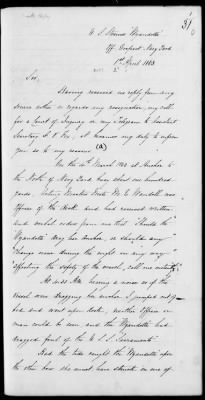 31
U. S. Steamer "Wyandotte"
Off Gosport Navy Yard
1st April 1863
Sir,
Having received no reply from any
source either as regards my resignation, my call
for a Court of Inquiry or my Telegram to Assistant
Secretary G. V. Fox, it becomes my duty to inform
you as to my reasons
(a)
On the March while at Anchor to
the North of Navy Yard, some one hundred
yards, Acting Master's Mate Wm. C. Randall was
Officer of the deck and had received written
and verbal orders from me "Should the
Wyandotte drag her Anchor, or should any
change occur during the night in any way
affecting the safety of the vessel, call me instantly"
At hearing a noise as if the
vessel were dragging her anchor I jumped out of
bed and went upon deck, neither Officer or
man could be seen and the Wyandotte had
dragged foul of the U. S. S. Sacramento
Had the tide caught the Wyandotte upon
the other bow she must have struck on one of